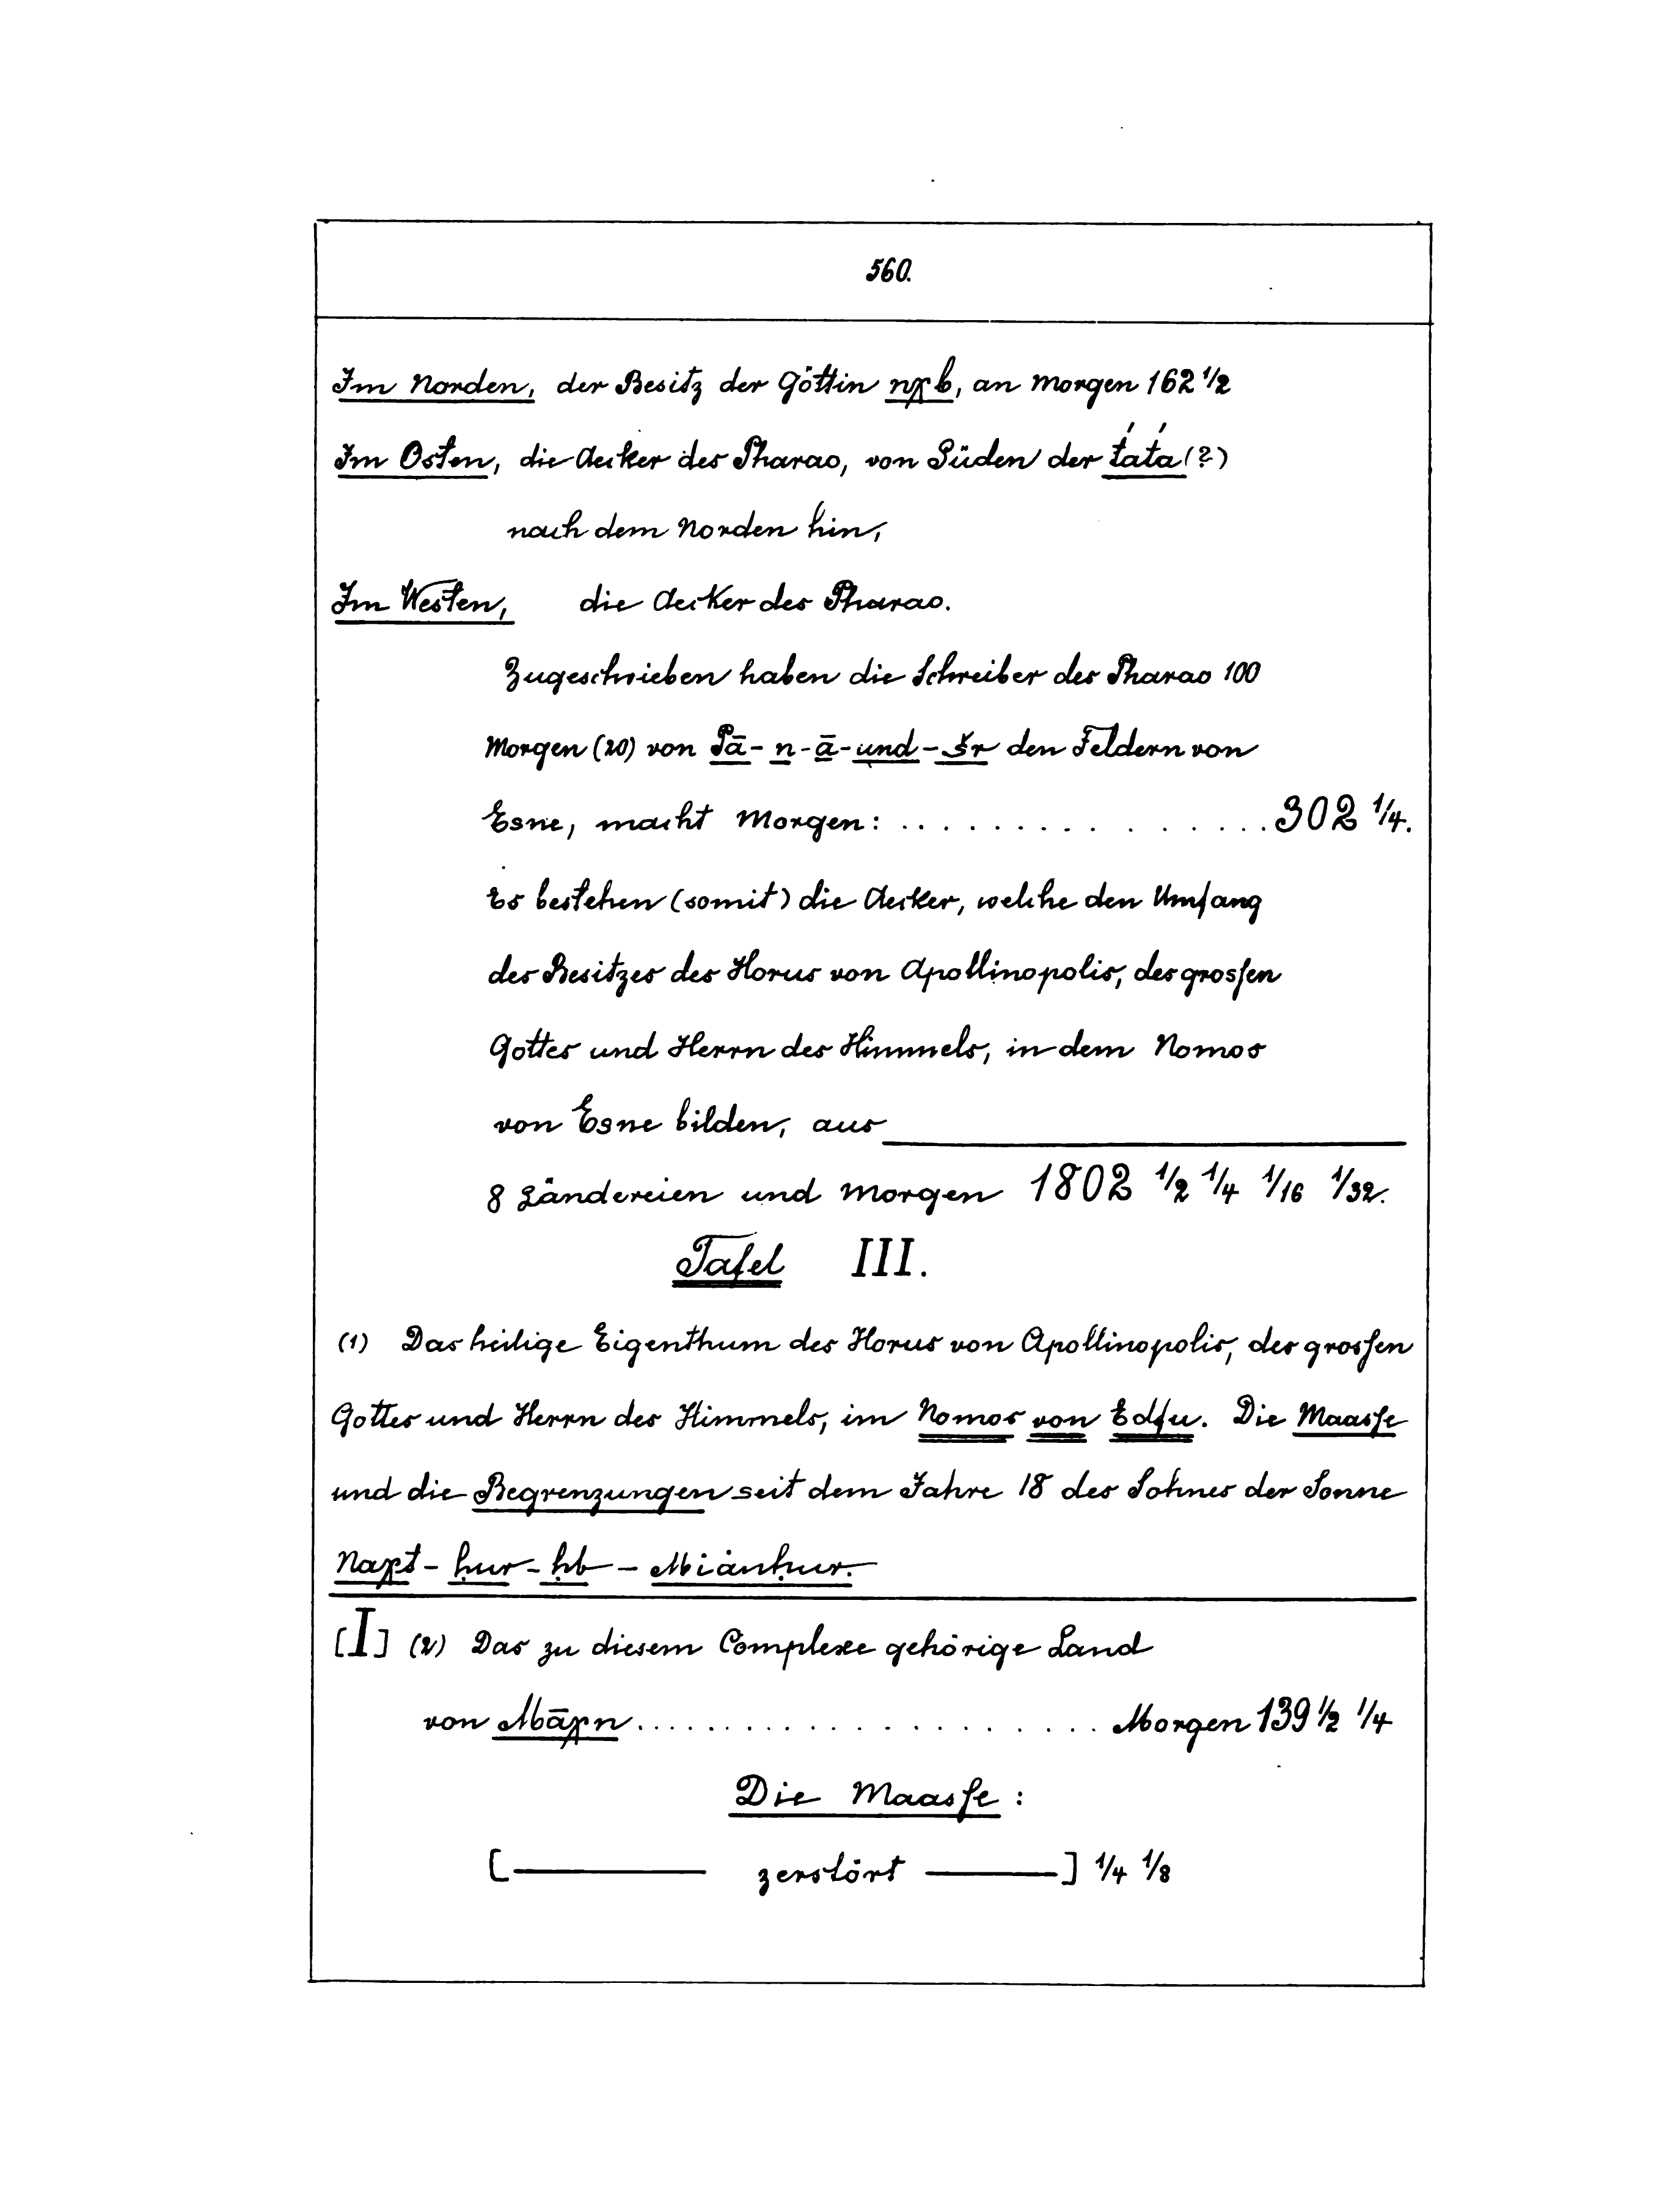 560.
Im Norden, der Besitz der Göttin nχb, an Morgen 162 1/2
Im Osten, die Aecker des Pharao, von Süden der t́at́a (?)
nach dem Norden hin,
Im Westen, die Aecker des Pharao.
Zugeschrieben haben die Schreiber des Pharao 100
Morgen (20) von Pā-n-ā-und-šr den Feldern von
Esne, macht Morgen: ................302 1/4.
Es bestehen (somit) die Aecker, welche den Umfang
des Besitzes des Horus von Apollinopolis, des grossen
Gottes und Herrn des Himmels, in dem Nomos
von Esne bilden, aus
8 Ländereien und Morgen 1802 1/2 1/4 1/16 1/32.
Tafel III.
(1) Das heilige Eigenthum des Horus von Apollinopolis, des grossen
Gottes und Herrn des Himmels, im Nomos von Edfu. Die Maasse
und die Begrenzungen seit dem Jahre 18 des Sohnes der Sonne
Naχt-ḥur-ḥb-Miȧnḥur.
[I] (2) Das zu diesem Complexe gehörige Land
von Māχn..................... Morgen 139 1/2 1/4
Die Maasse:
[——— zerstört ———] 1/4 1/8